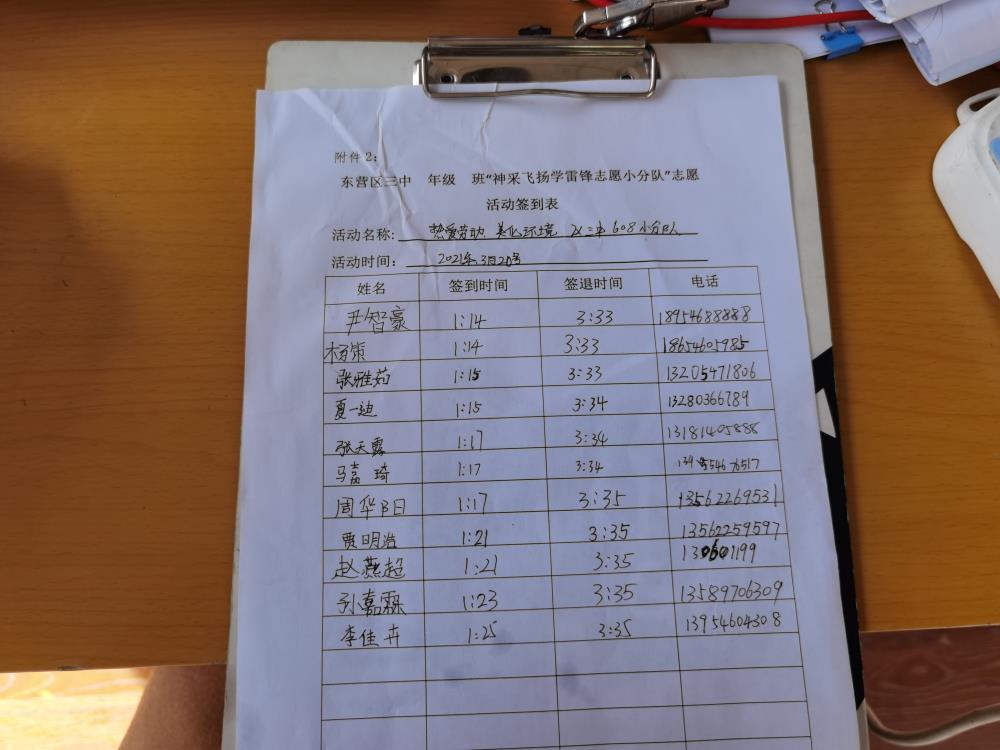 附件 2：
东营区三中 年级 班“神采飞扬学雷锋志愿小分队”志愿
活动签到表
活动名称: 热爱劳动 美化环境 三中 608小分队
活动时间： 2021年3月20号
姓名 签到时间 签退时间 电话
尹智豪 1:14 3:33 18954688888
杨策 1:14 3:33 18654605985
张雅茹 1:15 3:33 13205471806
夏一迪 1:15 3:34 13280366789
张天露 1:17 3:34 13181405888
马嘉琦 1:17 3:34
周华阳 1:17 3:35 13562269531
贾明浩 1:21 3:35 13562259597
赵燕超 1:21 3:35
孙嘉霖 1:23 3:35 13589706309
李佳卉 1:25 3:35 13954604308